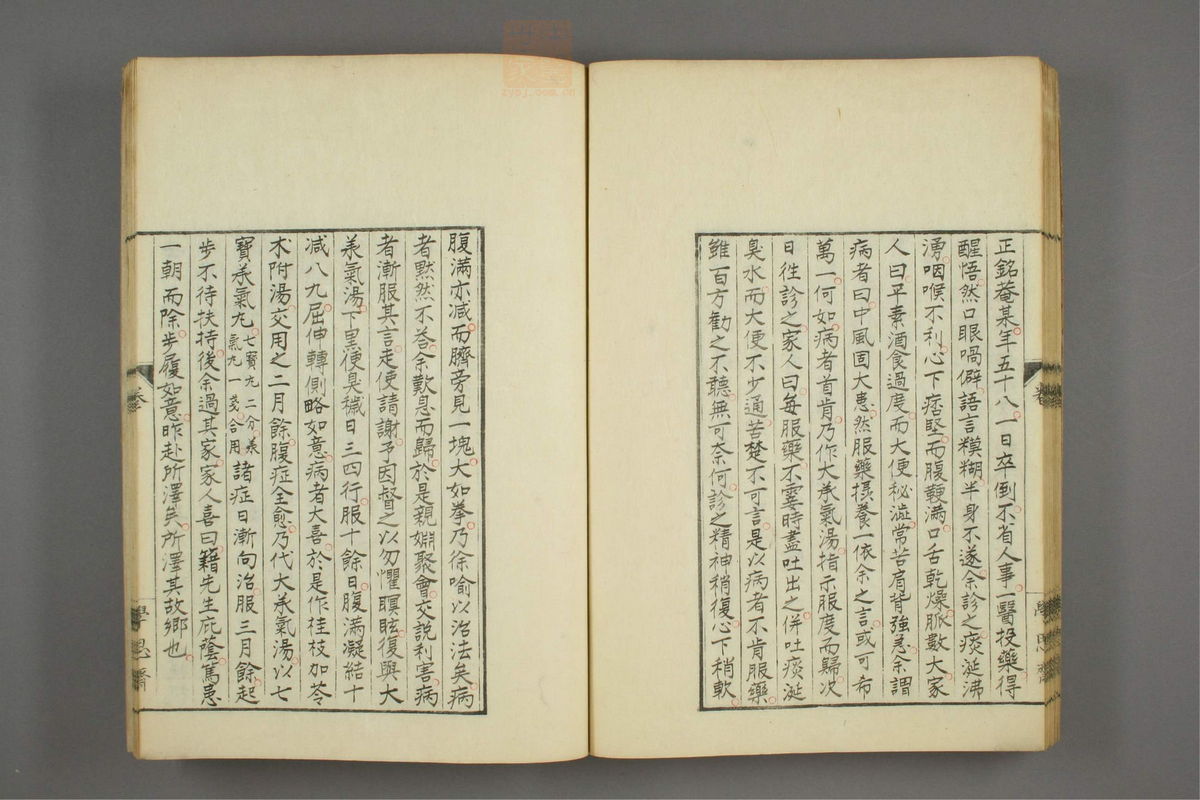 正銘菴某年五十八一日卒倒不省人事一醫投藥得
醒悟然口眼喎僻語言糢糊半身不遂余診之痰涎沸
湧咽喉不利心下痞堅而腹鞕滿口舌乾燥脈數大家
人曰平素酒食過度而大便秘澁常苦肩背強急余謂
病者曰中風固大患然服藥攝養一依余之言或可希
萬一何如病者首肯乃作大承氣湯指示服度而歸次
日徃診之家人曰每服藥不霎時盡吐出之併吐痰涎
臭水而大便不少通苦楚不可言是以病者不肯服藥
雖百方勸之不聽無可奈何診之精神稍復心下稍軟
腹滿亦減而臍旁見一塊大如拳乃徐喻以治法矣病
者默然不荅余歎息而歸於是親婣聚會交說利害病
者漸服其言走使請謝予因督之以勿懼瞑眩復與大
承氣湯下黑便臭穢日三四行服十餘日腹滿凝結十
減八九屈伸轉側略如意病者大喜於是作桂枝加苓
朮附湯交用之二月餘腹症全愈乃代大承氣湯以七
寶承氣丸七寶丸二分承氣丸一戔合用諸症日漸向治服三月餘起
步不待扶持後余過其家家人喜曰籍先生庇蔭篤患
一朝而除步履如意昨赴所澤矣所澤其故鄉也
卷
學思齋
zysj.com.cn